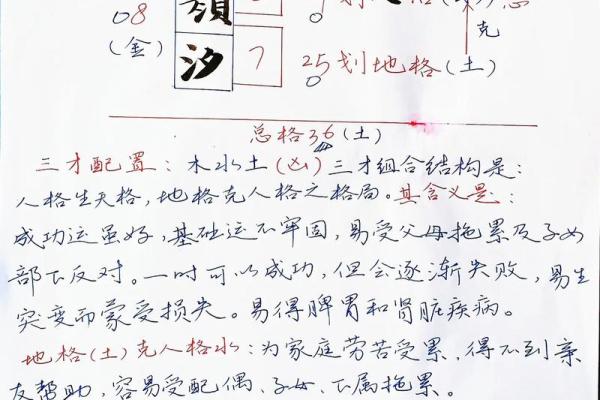 08
(金)
汐
7
克
25划地格(土)
总格36(土)
三才配置：木水土(凶)三才组合结构是：
人格生天格，地格克人格之格局。其含义是：
成功运虽好，基础运不牢固，易受父母拖累及子女
部下反对。一时可以成功，但会逐渐失败，易生
突变而蒙受损失。易得脾胃和肾脏疾病。
地格(土)克人格水：为家庭劳苦受累、得不到亲
友帮助，容易受配偶、子女、下属拖累。